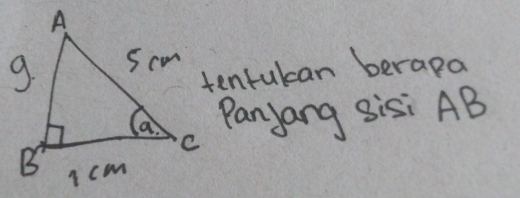 9.
A
5 cm
B
1 cm
a.
C
tentukan berapa
Panjang sisi AB